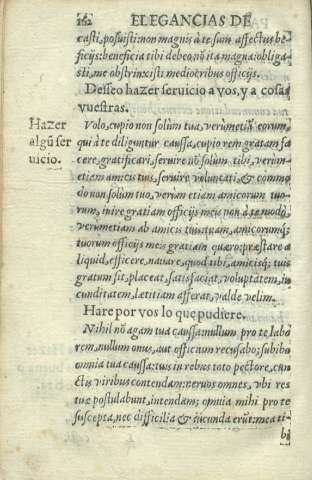 162 ELEGANCIAS DE
casti, posuisti: non magnis à te sum affectus be
neficijs: beneficia tibi debeo nõ ita magna: obliga
sti, me obstrinxisti mediocribus officijs.
Desseo hazer seruicio a vos, y a cosas
vuestras.
Hazer
algũ ser
uicio.
Volo, cupio non solùm tua, verùmetiã eorum,
qui à te diliguntur caussa, cupio rem gratam fa
cere, gratificari, seruire nõ solùm tibi, verùm-
etiam amicis tuis, seruire voluntati, & commo
do non solùm tuo, verùm etiam amicorum tuo-
rum, inire gratiam officijs meis non à te modò,
verumetiam ab amicis tuis: tuam, amicorumq;
tuorum officijs meis gratiam quæro: præstare a
liquid, efficere, nauare, quod tibi, amicisq; tuis
gratum sit, placeat, satisfaciat, voluptatem, iu
cunditatem, lætitiam afferat, valde velim.
Hare por vos lo que pudiere.
Nihil nõ agam tua caussa: nullum pro te labo
rem, nullum onus, aut officium recusabo: subibo
omnia tua caussa: tuis in rebus toto pectore, cun
ctis viribus contendam: neruos omnes, vbi res
tuæ postulabunt, intendam: omnia mihi pro te
suscepta, nec difficilia & iucunda erũt: mea ti-
bi